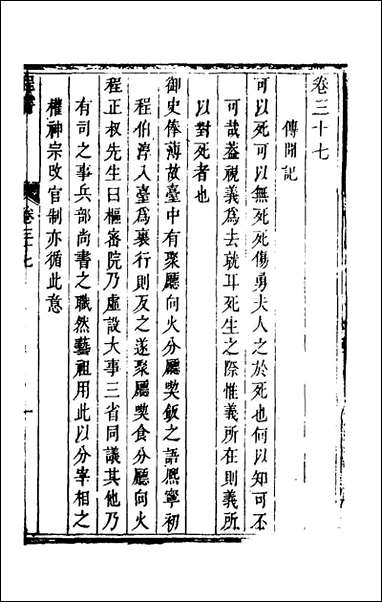 卷三十七
傳聞記
可以死可以無死死傷勇夫人之於死也何以知可不
可哉葢視義爲去就耳死生之際惟義所在則義所
以對死者也
御史俸薄故臺中有聚廳向火分廳喫飯之語熈寧初
程伯淳入臺爲裏行則反之遂聚廳喫食分廳向火
程正叔先生曰樞密院乃虚設大事三省同議其他乃
有司之事兵部尚書之職然藝祖用此以分宰相之
權神宗改官制亦循此意
卷三十七